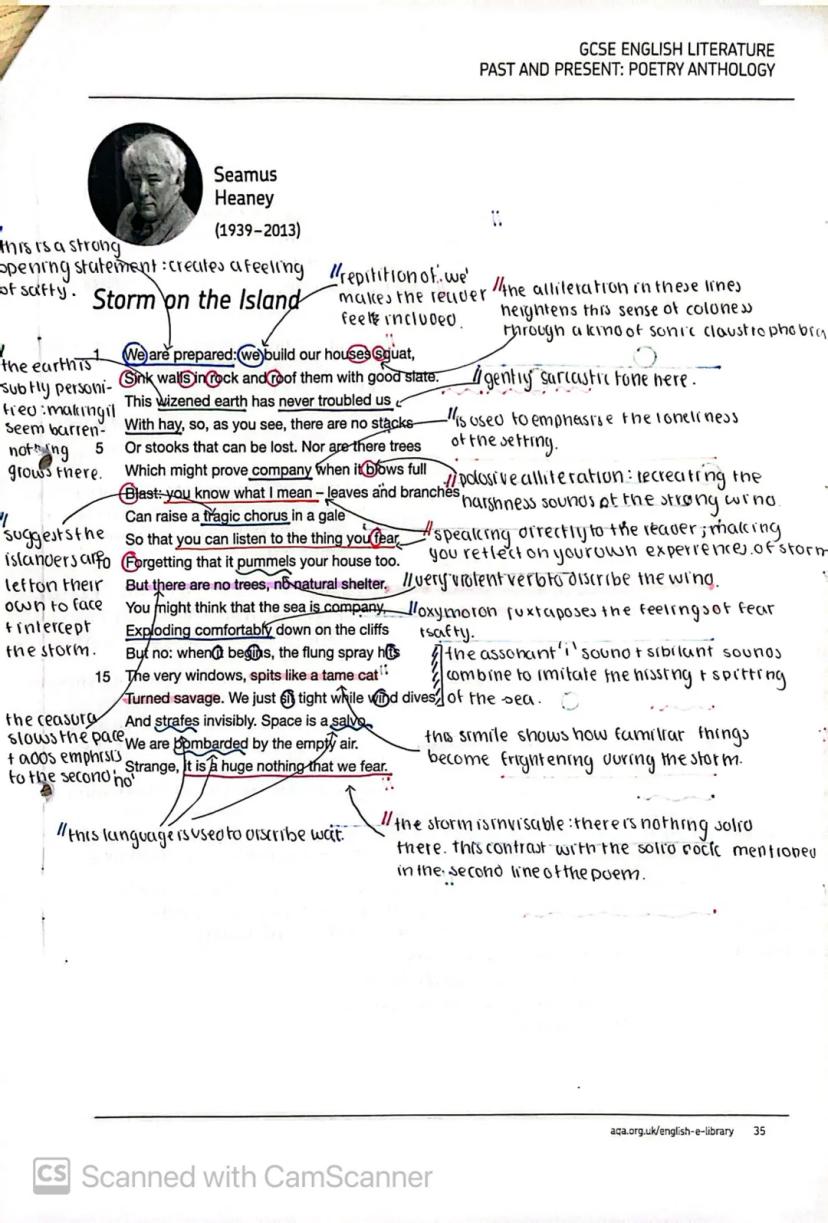 GCSE ENGLISH LITERATURE
PAST AND PRESENT: POETRY ANTHOLOGY
Seamus
Heaney
(1939–2013)
this is a strong
opening statement : creates a feeling
of safty.
"repitition of 'we'
makes the reader
feel included.
"the alliteration in these lines
heightens this sense of coloness
through a kind of sonic claustrophobia
Storm on the Island
1 We are prepared: we build our houses squat,
Sink walls in rock and roof them with good slate.
This wizened earth has never troubled us
With hay, so, as you see, there are no stacks
5 Or stooks that can be lost. Nor are there trees
Which might prove company when it blows full
Blast: you know what I mean – leaves and branches
Can raise a tragic chorus in a gale
So that you can listen to the thing you fear
Forgetting that it pummels your house too.
But there are no trees, no natural shelter.
You might think that the sea is company,
Exploding comfortably down on the cliffs
But no: when it begins, the flung spray hits
15 The very windows, spits like a tame cat
Turned savage. We just sit tight while wind dives
And strafes invisibly. Space is a salvo.
We are bombarded by the empty air.
Strange, it is a huge nothing that we fear.
the earth is
subtly personi-
fied : making it
seem barren-
nothing
grows there.
"gently sarcastic tone here.
"is used to emphasise the loneliness
of the setting.
"polosive alliteration : recreating the
harshness sounds of the strong wind
"speaking directly to the reader ; making
you reflect on your own experience. of storm
"very violent verb to discribe the wind.
"oxymoron juxtaposes the feelings of fear
+ safty.
the assonant 'i' sound + sibilant sounds
combine to imitate the hissing + spitting
of the sea.
this simile shows how familiar things
become frightening during the storm.
suggests the
islanders are
left on their
own to face
+ intercept
the storm.
the ceasura
slows the pace
+ adds emphisis
to the second 'no'
"this language is used to discribe
"the storm is invisable : there is nothing solid
there. this contrast with the solid rock mentioned
in the second line of the poem.
aqa.org.uk/english-e-library 35
CS Scanned with CamScanner